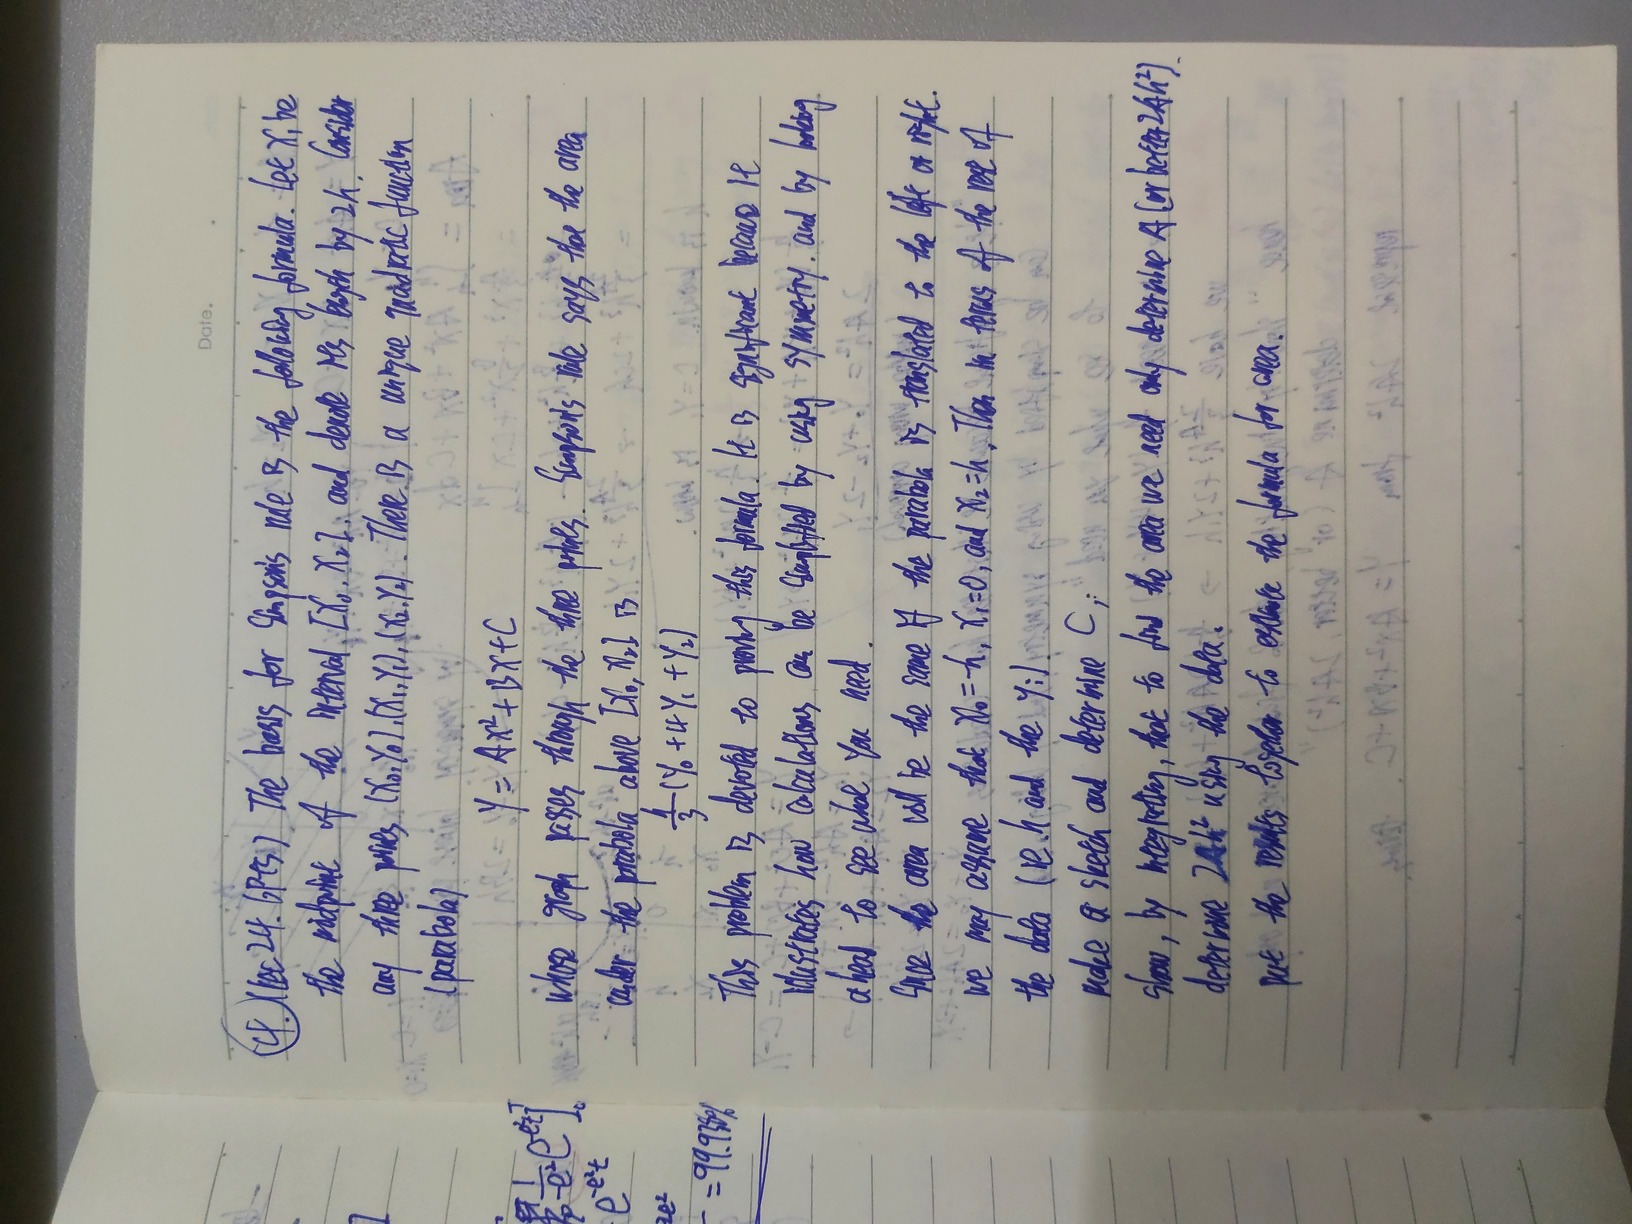 Date.
4. (Lec 24. 6pts) The basis for Simpson's rule is the following formula. Let X₁ be
the midpoint of the interval [X₀, X₂], and denote its length by 2h. Consider
any three points (X₀,Y₀), (X₁,Y₁), (X₂,Y₂). There is a unique quadratic function
(parabola)
Y = AX² + BX + C
whose graph passes through the three points. Simpson's rule says that the area
under the parabola above [X₀, X₂] is
h/3 (Y₀ + 4Y₁ + Y₂)
This problem is devoted to proving this formula. It is significant because it
illustrates how calculations can be simplified by using symmetry. and by looking
ahead to see what you need.
Since the area will be the same if the parabola is translated to the left or right.
we may assume that X₀ = -h, X₁ = 0, and X₂ = h. Then in terms of the rest of
the data (i.e. h and the yᵢ).
make a sketch and determine C;
show, by integrating, that to find the area we need only determine A (or better 2Ah²).
determine 2Ah² using the data.
put the results together to the formula for area.
]
1/-e² e^-e²t ]₀
e^-e²t
= 99.938%